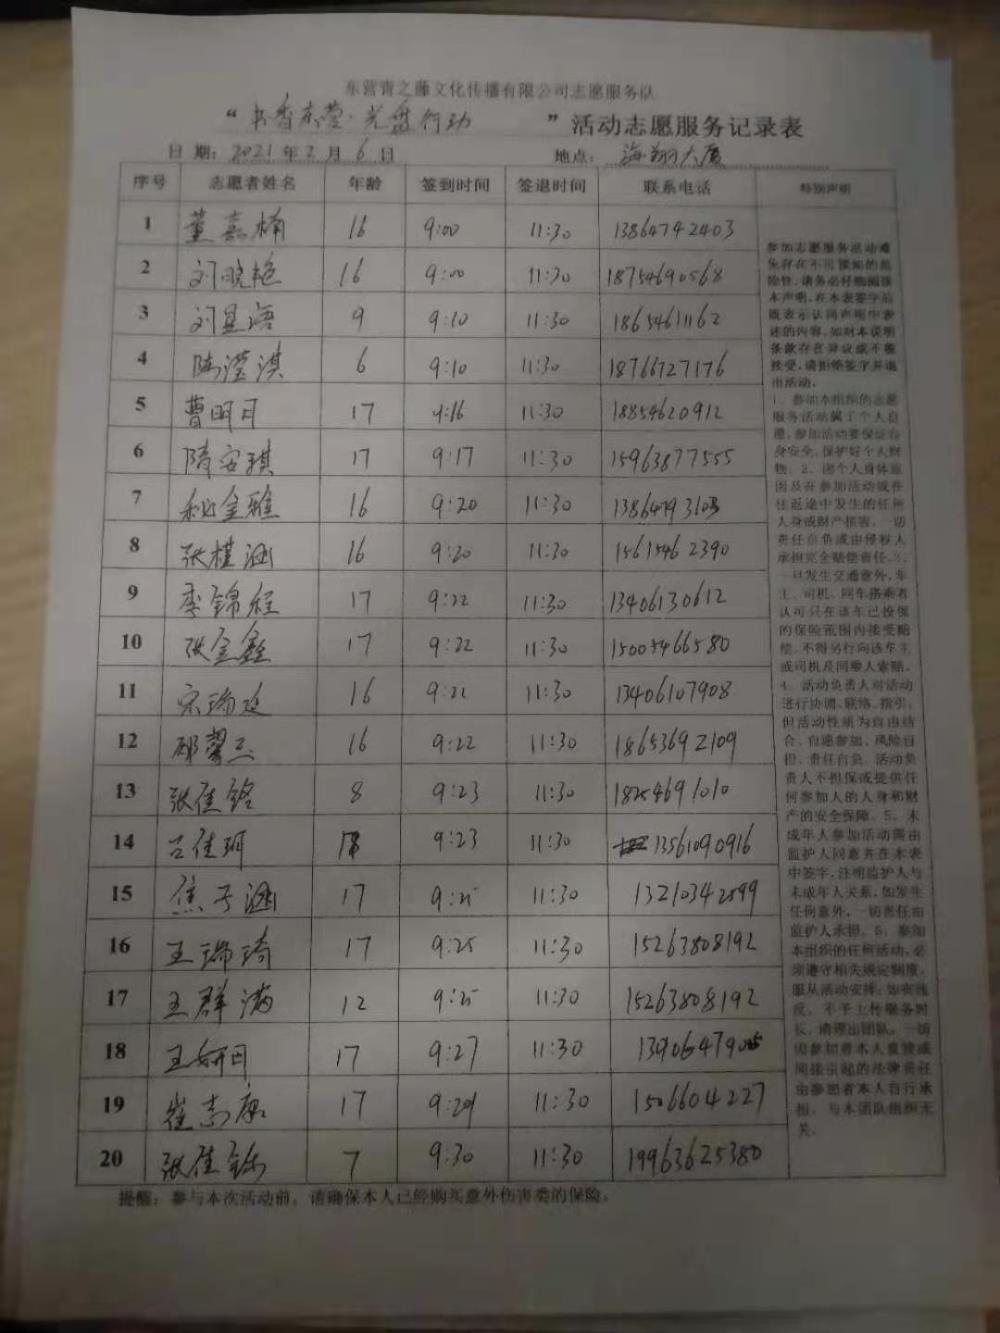 东营青之藤文化传播有限公司志愿服务队
“书香东营·光盘行动”活动志愿服务记录表
日期:2021年2月6日 地点:海翔大厦
序号 志愿者姓名 年龄 签到时间 签退时间 联系电话 特别声明
1 董嘉楠 16 9:00 11:30 13864742403
2 刘晓艳 16 9:00 11:30 18754690568
3 刘星语 9 9:10 11:30 18654611162
4 陈滢淇 6 9:10 11:30 18766727176
5 曹明月 17 9:16 11:30 18854620912
6 隋安琪 17 9:17 11:30 15963877555
7 秘金雅 16 9:20 11:30
8 张槿涵 16 9:20 11:30 15615462390
9 李锦程 17 9:22 11:30 13406130612
10 张金鑫 17 9:22 11:30 15005466580
11 宋瑞廷 16 9:22 11:30 13406107908
12 邵馨 16 9:22 11:30 18653692109
13 张佳铭 8 9:23 11:30 18254691010
14 吕佳玥 9:23 11:30 13561090916
15 焦子涵 17 9:25 11:30 13210342599
16 王瑞琦 17 9:25 11:30 15263808192
17 王群满 12 9:25 11:30 15263808192
18 王妍日 17 9:27 11:30
19 崔志康 17 9:29 11:30 1506604227
20 张佳铄 7 9:30 11:30 19963625380
参加志愿服务活动难
免存在不可预知的危
险性,请务必仔细阅读
本声明,在本表签字后
既表示认同声明中表
述的内容,如对本说明
条款存在异议或不能
接受,请拒绝签字并退
出活动。
1、参加本组织的志愿
服务活动属于个人自
愿,参加活动要保证自
身安全,保护好个人财
物。2、因个人身体原
因及在参加活动或在
往返途中发生的任何
人身或财产损害,一切
责任自负或由侵权人
承担完全赔偿责任。3、
一旦发生交通意外,车
主、司机、同车搭乘者
认可只在该车已投保
的保险范围内接受赔
偿,不得另行向该车主
或司机及同乘人索赔。
4、活动负责人对活动
进行协调、联络、指引,
但活动性质为自由结
合、自愿参加、风险自
担、责任自负。活动负
责人不担保或提供任
何参加人的人身和财
产的安全保障。5、未
成年人参加活动需由
监护人同意并在本表
中签字,注明监护人与
未成年人关系,如发生
任何意外,一切责任由
监护人承担。6、参加
本组织的任何活动,必
须遵守相关规定制度,
服从活动安排;如有违
反,不予上传服务时
长,清理出团队。一切
因参加者本人直接或
间接引起的法律责任
由参加者本人自行承
担,与本团队组织无
关。
提醒:参与本次活动前,请确保本人已经购买意外伤害类的保险。